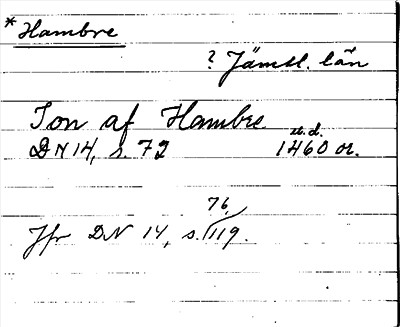 *Hambre
? Jämtl. län
Jon af Hambre
u.d.
DN 14, s. 72 1460 or.
76,
Jfr DN 14, s. 119.